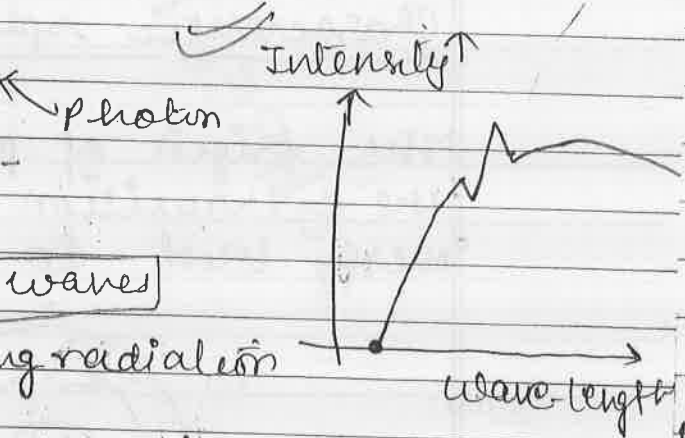 Intensity↑
Photon
waves
ng radiation
Wave-length